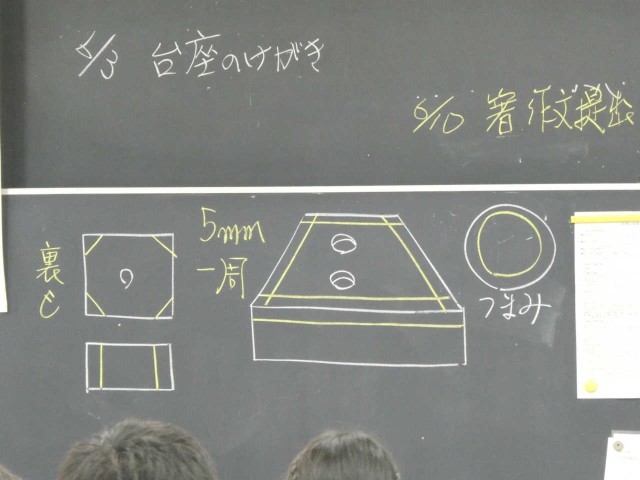 6/3 台座のけがき
6/10 暑 作文提出
5mm
一周
裏
つまみ